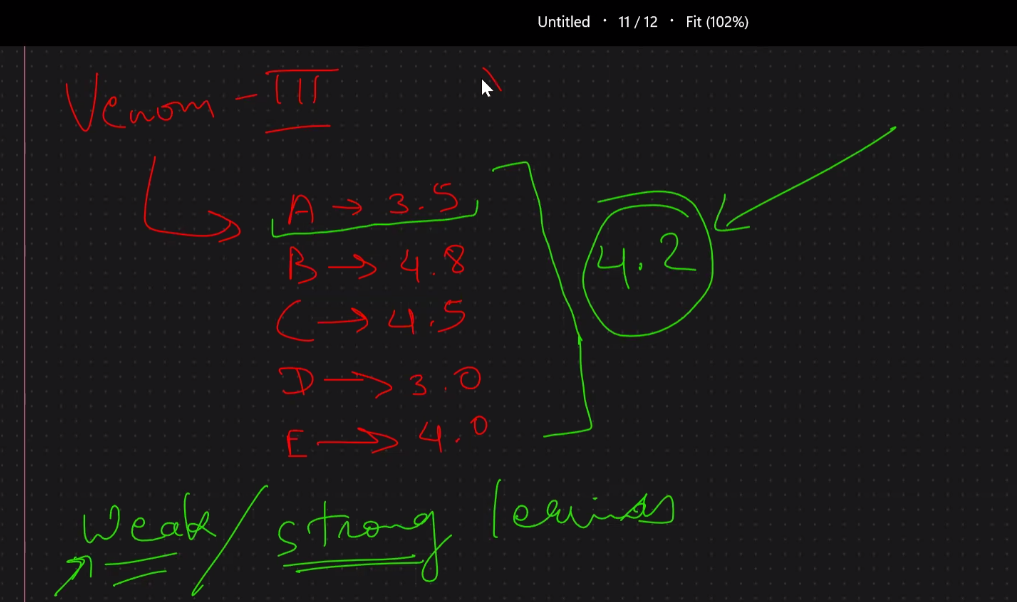 Untitled • 11 / 12 • Fit (102%)
Venom - III
A → 3.5
B → 4.8
C → 4.5
D → 3.0
E → 4.0
4.2
Weak / strong